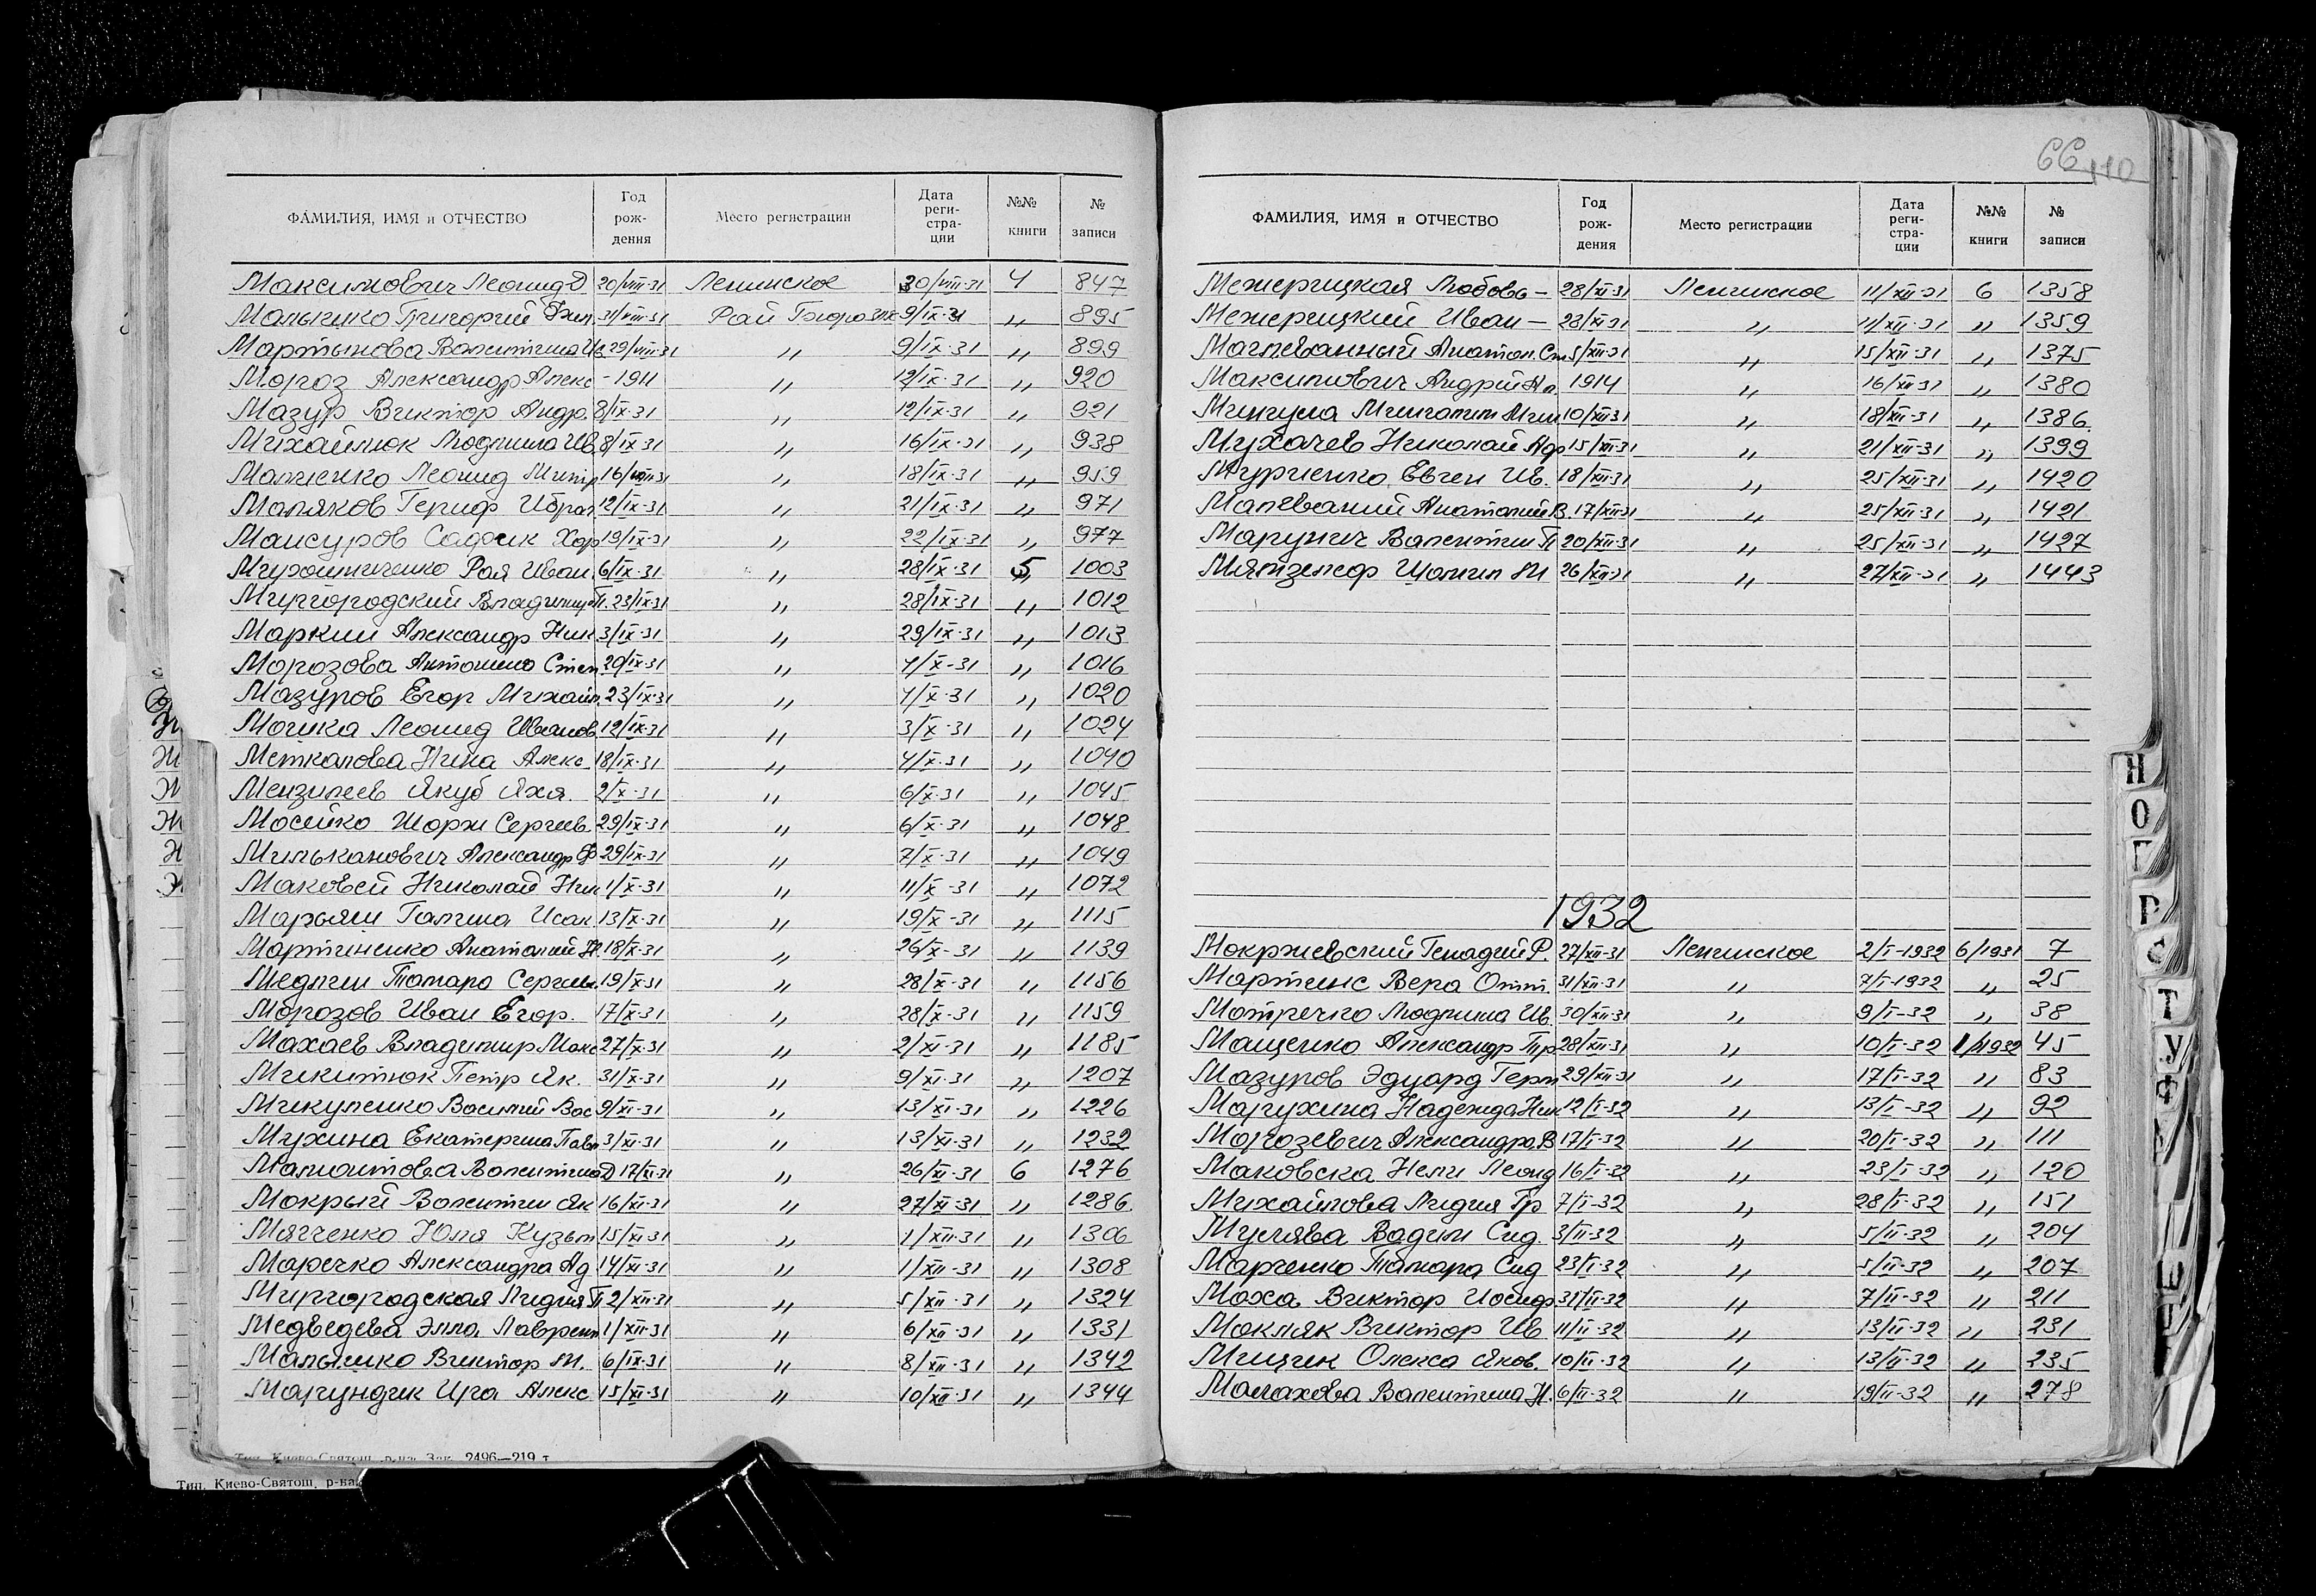 66 110
ФАМИЛИЯ, ИМЯ и ОТЧЕСТВО Год рож- дения Место регистрации Дата реги- стра- ции №№ книги № записи
Максимович Леонид Д 20/VIII-31 Ленинское 20/VIII-31 4 847
Григорий Фил. 31/VIII-31 Рай Бюро 9/IX-31 " 895
Мартынова Валентина Ив 29/VIII-31 " 9/IX-31 " 899
Мороз Александр Алекс - 1911 " 12/IX-31 " 920
Мазур Виктор Андр. 8/IX-31 " 12/IX-31 " 921
Михайлюк Людмила Ив. 8/IX-31 " 16/IX-31 " 938
Леонид Митр 16/VIII-31 " 18/IX-31 " 959
Маляков Гериф Ибраг 12/IX-31 " 21/IX-31 " 971
Мансуров Садрик Хар 19/IX-31 " 22/IX-31 " 977
Рая Иван. 6/IX-31 " 28/IX-31 5 1003
Миргородский Владимир П. 23/IX-31 " 28/IX-31 " 1012
Маркин Александр Ник 3/IX-31 " 29/IX-31 " 1013
Морозова Антонина Степ 20/IX-31 " 1/X-31 " 1016
Мазуров Егор Михайл. 23/IX-31 " 1/X-31 " 1020
Леонид Иванов. 12/IX-31 " 3/X-31 " 1024
Меткалова Нина Алекс 18/IX-31 " 4/X-31 " 1040
Мензилеев Якуб Яхя. 2/X-31 " 6/X-31 " 1045
Мосейко Жорж Сергеев. 29/IX-31 " 6/X-31 " 1048
Мильканович Александр Ф 29/IX-31 " 7/X-31 " 1049
Маковей Николай Ник 1/X-31 " 11/X-31 " 1072
Марьяш Галина Исак. 13/X-31 " 19/X-31 " 1115
Мартиненко Анатолий Н. 18/X-31 " 26/X-31 " 1139
Медлин Тамара Сергиев. 19/X-31 " 28/X-31 " 1156
Морозов Иван Егор. 17/X-31 " 28/X-31 " 1159
Махаев Владимир Макс 27/X-31 " 2/XI-31 " 1185
Микитюк Петр Як. 31/X-31 " 9/XI-31 " 1207
Микуленко Василий Вас 9/XI-31 " 13/XI-31 " 1226
Мухина Екатерина Павл 3/XI-31 " 13/XI-31 " 1232
Валентина Д 17/XI-31 " 26/XI-31 6 1276
Мокрый Валентин Як 16/XI-31 " 27/XI-31 " 1286
Мягченко Юля Кузьм 15/XI-31 " 1/XII-31 " 1306
Маречко Александра Ад 14/XI-31 " 1/XII-31 " 1308
Миргородская Лидия П 2/XII-31 " 5/XII-31 " 1324
Медведева Элла Лаврент 1/XII-31 " 6/XII-31 " 1331
Малышко Виктор М. 6/IX-31 " 8/XII-31 " 1342
Марундик Ира Алекс 15/XI-31 " 10/XII-31 " 1344
Тип. Киево-Святош. р-на. Зак. 2496—219 т
Тип. Киево-Святош. р-на
ФАМИЛИЯ, ИМЯ и ОТЧЕСТВО Год рож- дения Место регистрации Дата реги- стра- ции №№ книги № записи
Межерицкая Любовь — 28/XI-31 Ленинское 11/XII-31 6 1358
Межерицкий Иван — 28/XI-31 " 11/XII-31 " 1359
Анатол. Ст 5/XII-31 " 15/XII-31 " 1375
Максимович Андрей 1914 " 16/XII-31 " 1380
10/XII-31 " 18/XII-31 " 1386
Мухачев Николай 15/XII-31 " 21/XII-31 " 1399
Мурненко Евген Ив. 18/XII-31 " 25/XII-31 " 1420
Малеваний Анатолий В. 17/XII-31 " 25/XII-31 " 1421
Марунич Валентин П 20/XII-31 " 25/XII-31 " 1427
26/XII-31 " 27/XII-31 " 1443
1932
Мокржевский Генадий Р. 27/XII-31 Ленинское 2/I-1932 6/1931 7
Мартинс Вера Отт. 31/XII-31 " 7/I-1932 " 25
Мотречко Людмила Ив. 30/XII-31 " 9/I-32 " 38
Мащенко Александр Пр 28/XII-31 " 10/I-32 1/1932 45
Мазуров Эдуард Герм 29/XII-31 " 17/I-32 " 83
Марухина Надежда Ник 12/I-32 " 13/I-32 " 92
Морозевич Александра В 17/I-32 " 20/I-32 " 111
Маковска Нели Леонд 16/I-32 " 23/I-32 " 120
Михайлова Лидия Гр 7/I-32 " 28/I-32 " 151
Мулява Вадим Сид. 3/II-32 " 5/II-32 " 204
Марченко Тамара Сид 23/I-32 " 5/II-32 " 207
Моха Виктор Иосиф 31/II-32 " 7/II-32 " 211
Макляк Виктор Ив 11/II-32 " 13/II-32 " 231
Олекса Яков. 10/II-32 " 13/II-32 " 235
Малахова Валентина Н. 6/II-32 " 19/II-32 " 278
Н
О
П
Р
С
Т
У
Ф
Ш